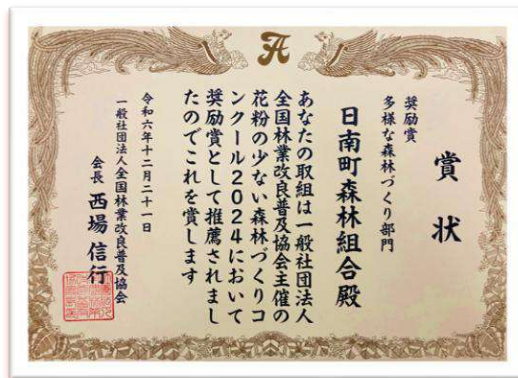 賞状
奨励賞
多様な森林づくり部門
日南町森林組合殿
あなたの取組は一般社団法人
全国林業改良普及協会主催の
花粉の少ない森林づくりコ
ンクール2024において
奨励賞として推薦されまし
たのでこれを賞します
令和六年十二月二十一日
一般社団法人全国林業改良普及協会
会長 西場信行